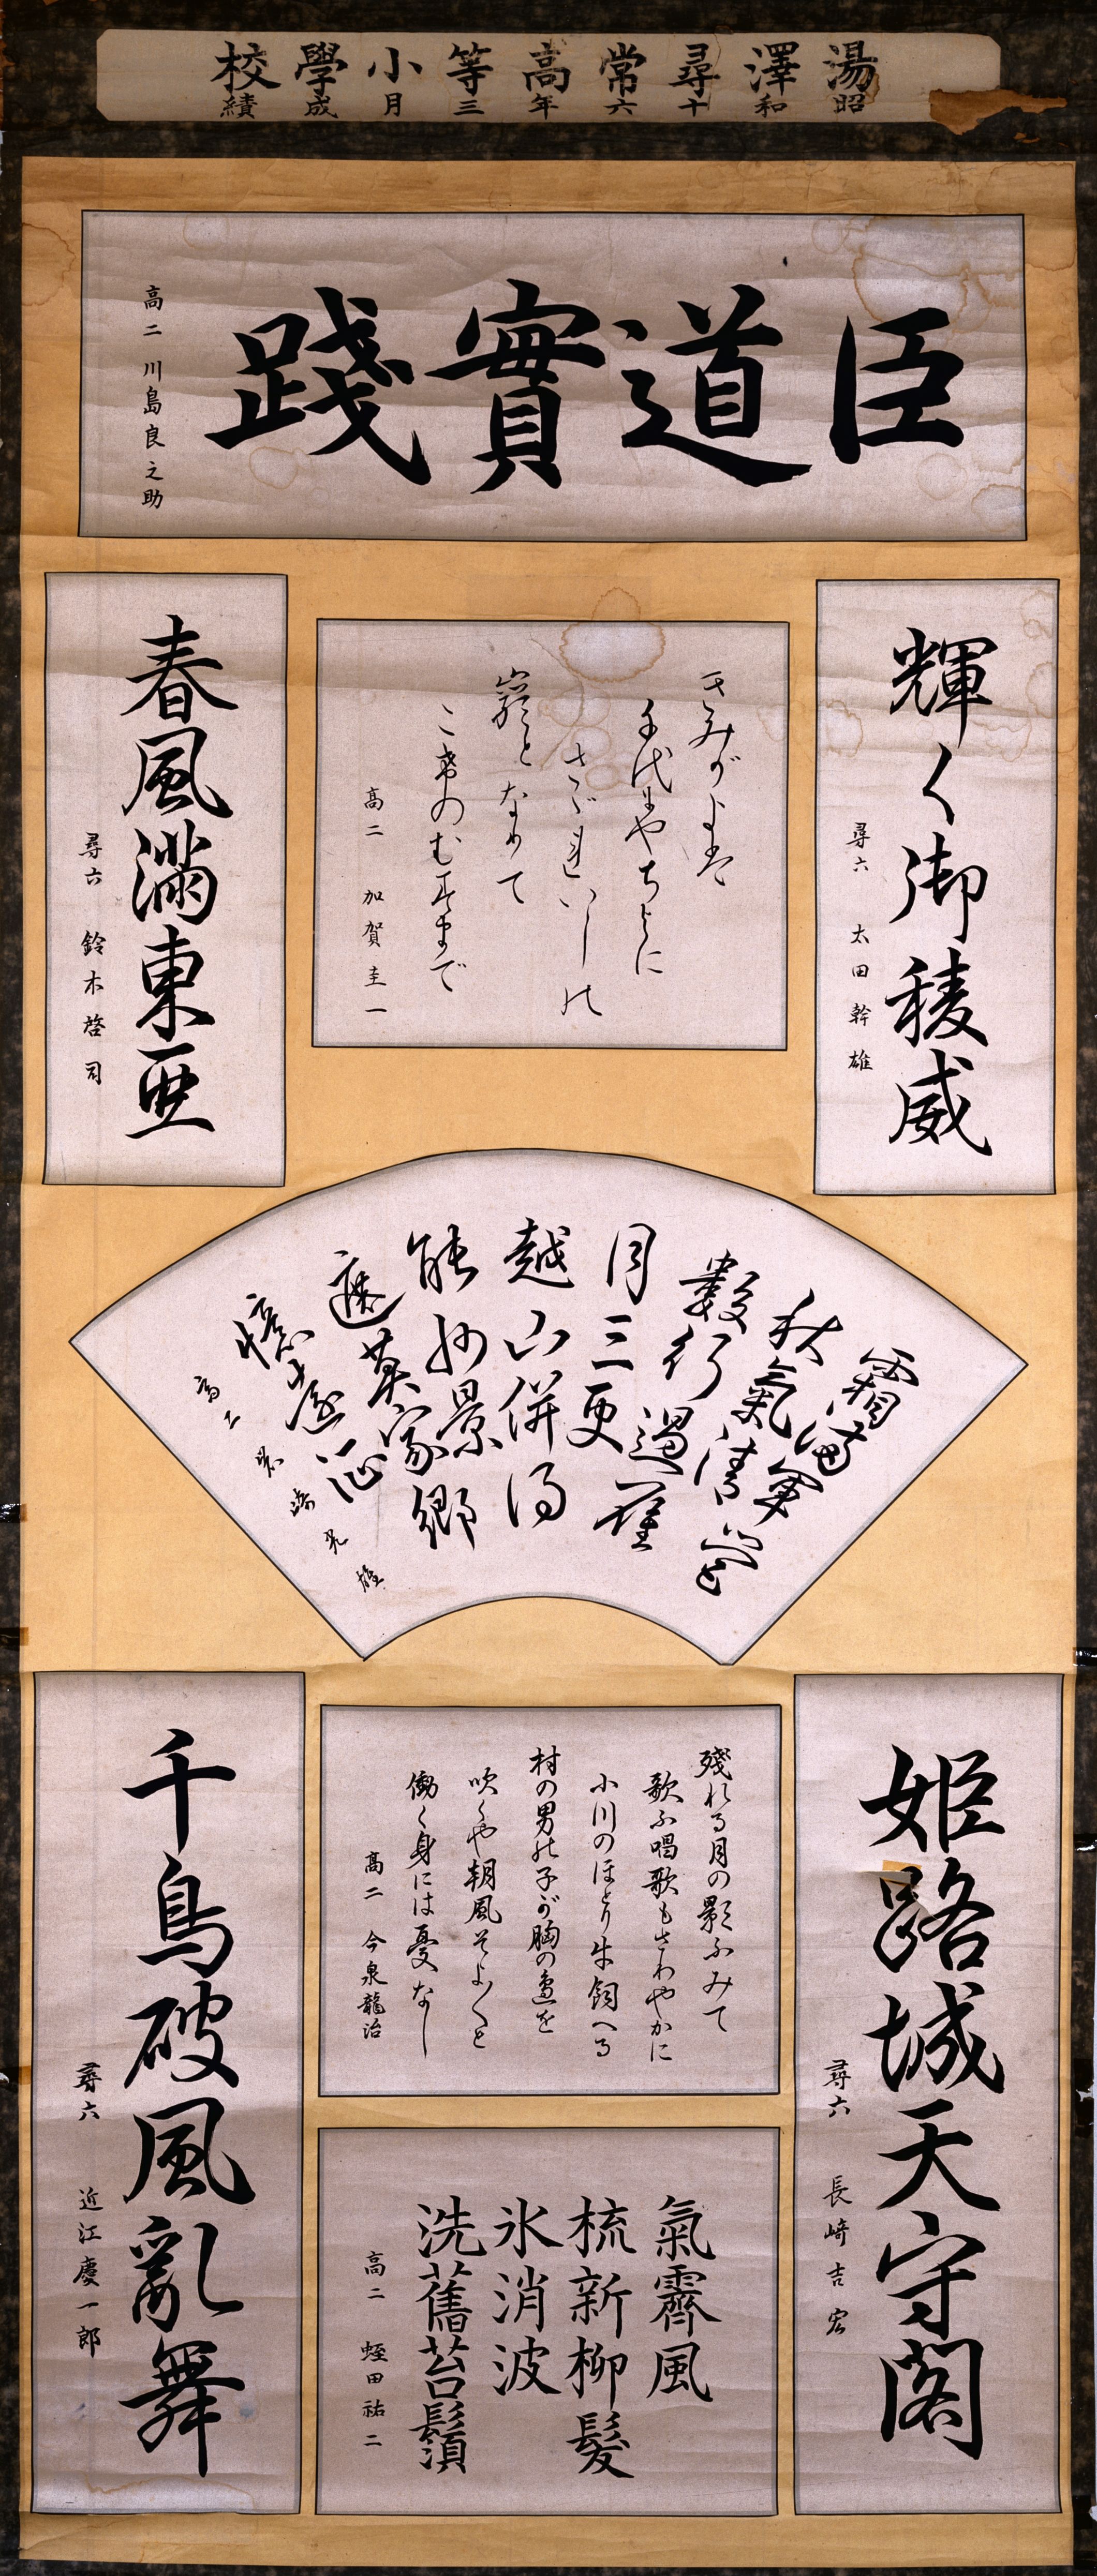 湯澤尋常高等小學校
昭和十六年三月成績
臣道實踐
高二 川島良之助
輝く御稜威
尋六 太田幹雄
きみがよは
千代にやちよに
さゞれいしの
巖となりて
こけのむすまで
高二 加賀圭一
春風滿東亜
尋六 鈴木啓司
霜満軍営
秋氣清
數行過雁
月三更
越山併得
能州景
遮莫家郷
憶遠征
高二 崎光雄
姫路城天守閣
尋六 長崎吉宏
殘れる月の影ふみて
歌ふ唱歌もさわやかに
小川のほとり牛飼へる
村の男の子が胸の邊を
吹くや朝風そよ〱と
働く身には憂なし
高二 今泉龍治
氣霽風
梳新柳髮
氷消波
洗舊苔鬚
高二 蛭田祐二
千鳥破風亂舞
尋六 近江慶一郎